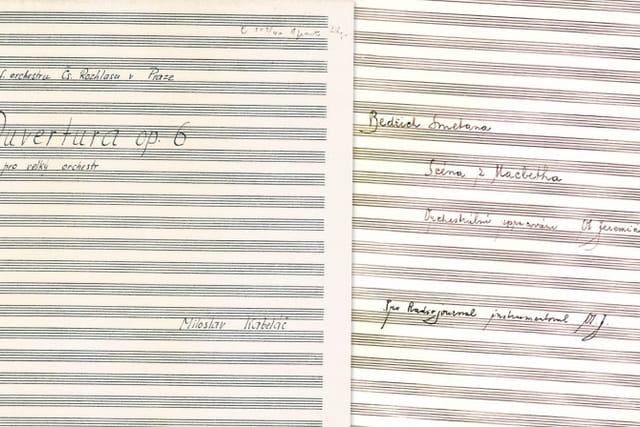 f. orchestru Čs. Rozhlasu v Praze
Ouvertura op. 6
pro velký orchestr
Miloslav Kabeláč
Bedřich Smetana
Scéna z Macbetha
Orchestrální zpracování
Pro Radiojournal instrumentoval M. J.